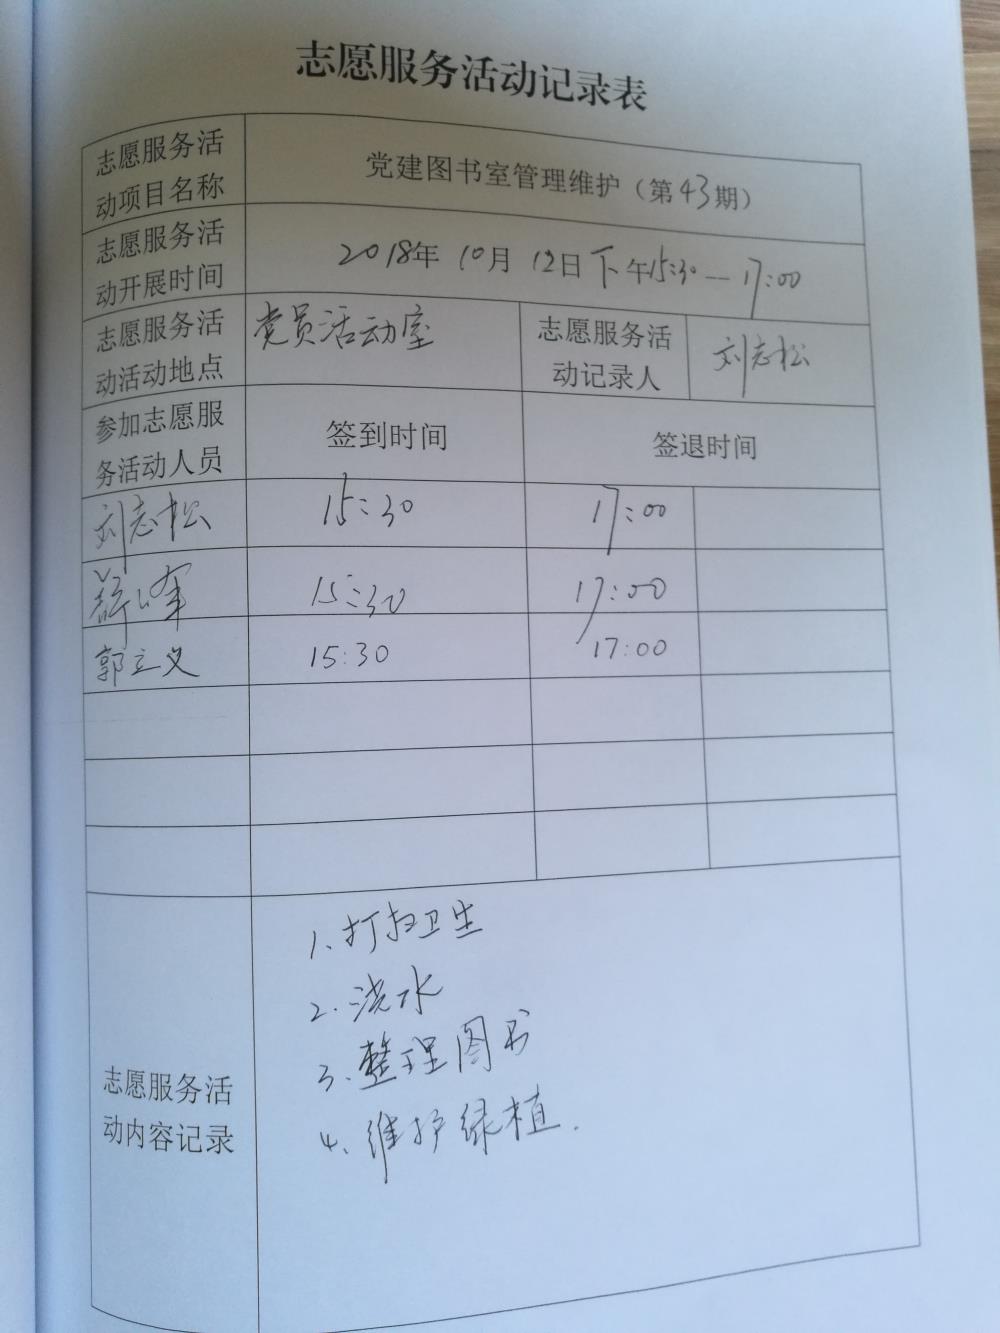 志愿服务活动记录表
志愿服务活
动项目名称
党建图书室管理维护（第43期）
志愿服务活
动开展时间
2018年 10月 12日 下午15:30—17:00
志愿服务活
动活动地点
党员活动室
志愿服务活
动记录人
刘志松
参加志愿服
务活动人员
签到时间
签退时间
刘志松
15:30
17:00
15:30
17:00
郭立义
15:30
17:00
志愿服务活
动内容记录
1、打扫卫生
2、浇水
3、整理图书
4、维护绿植.